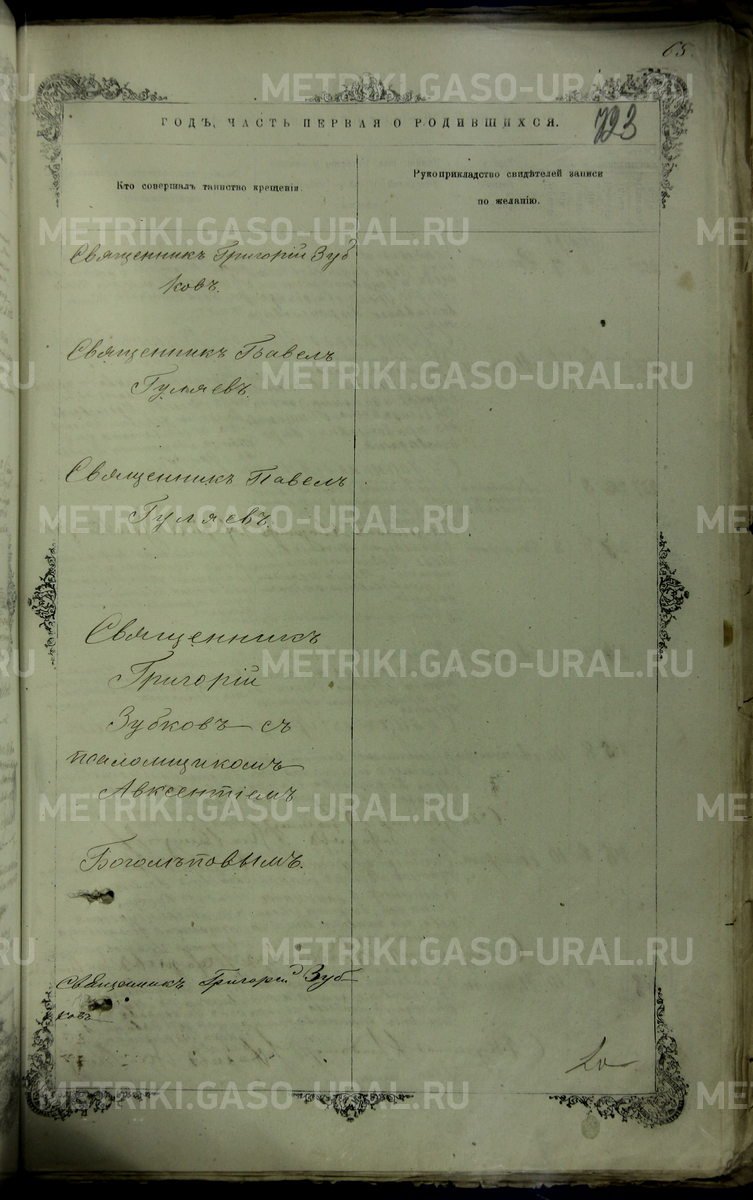 65
ГОДЪ, ЧАСТЬ ПЕРВАЯ О РОДИВШИХСЯ.
793
Кто совершалъ таинство крещенія.
Рукоприкладство свидѣтелей записи
по желанію.
Священникъ Григорій Зуб
ковъ.
Священникъ Павелъ
Гуляевъ.
Священникъ Павелъ
Гуляевъ.
Священникъ
Григорій
Зубковъ съ
псаломщикомъ
Авксентіемъ
Боголѣповымъ.
Священникъ Григорій Зуб
ковъ
METRIKI.GASO-URAL.RU